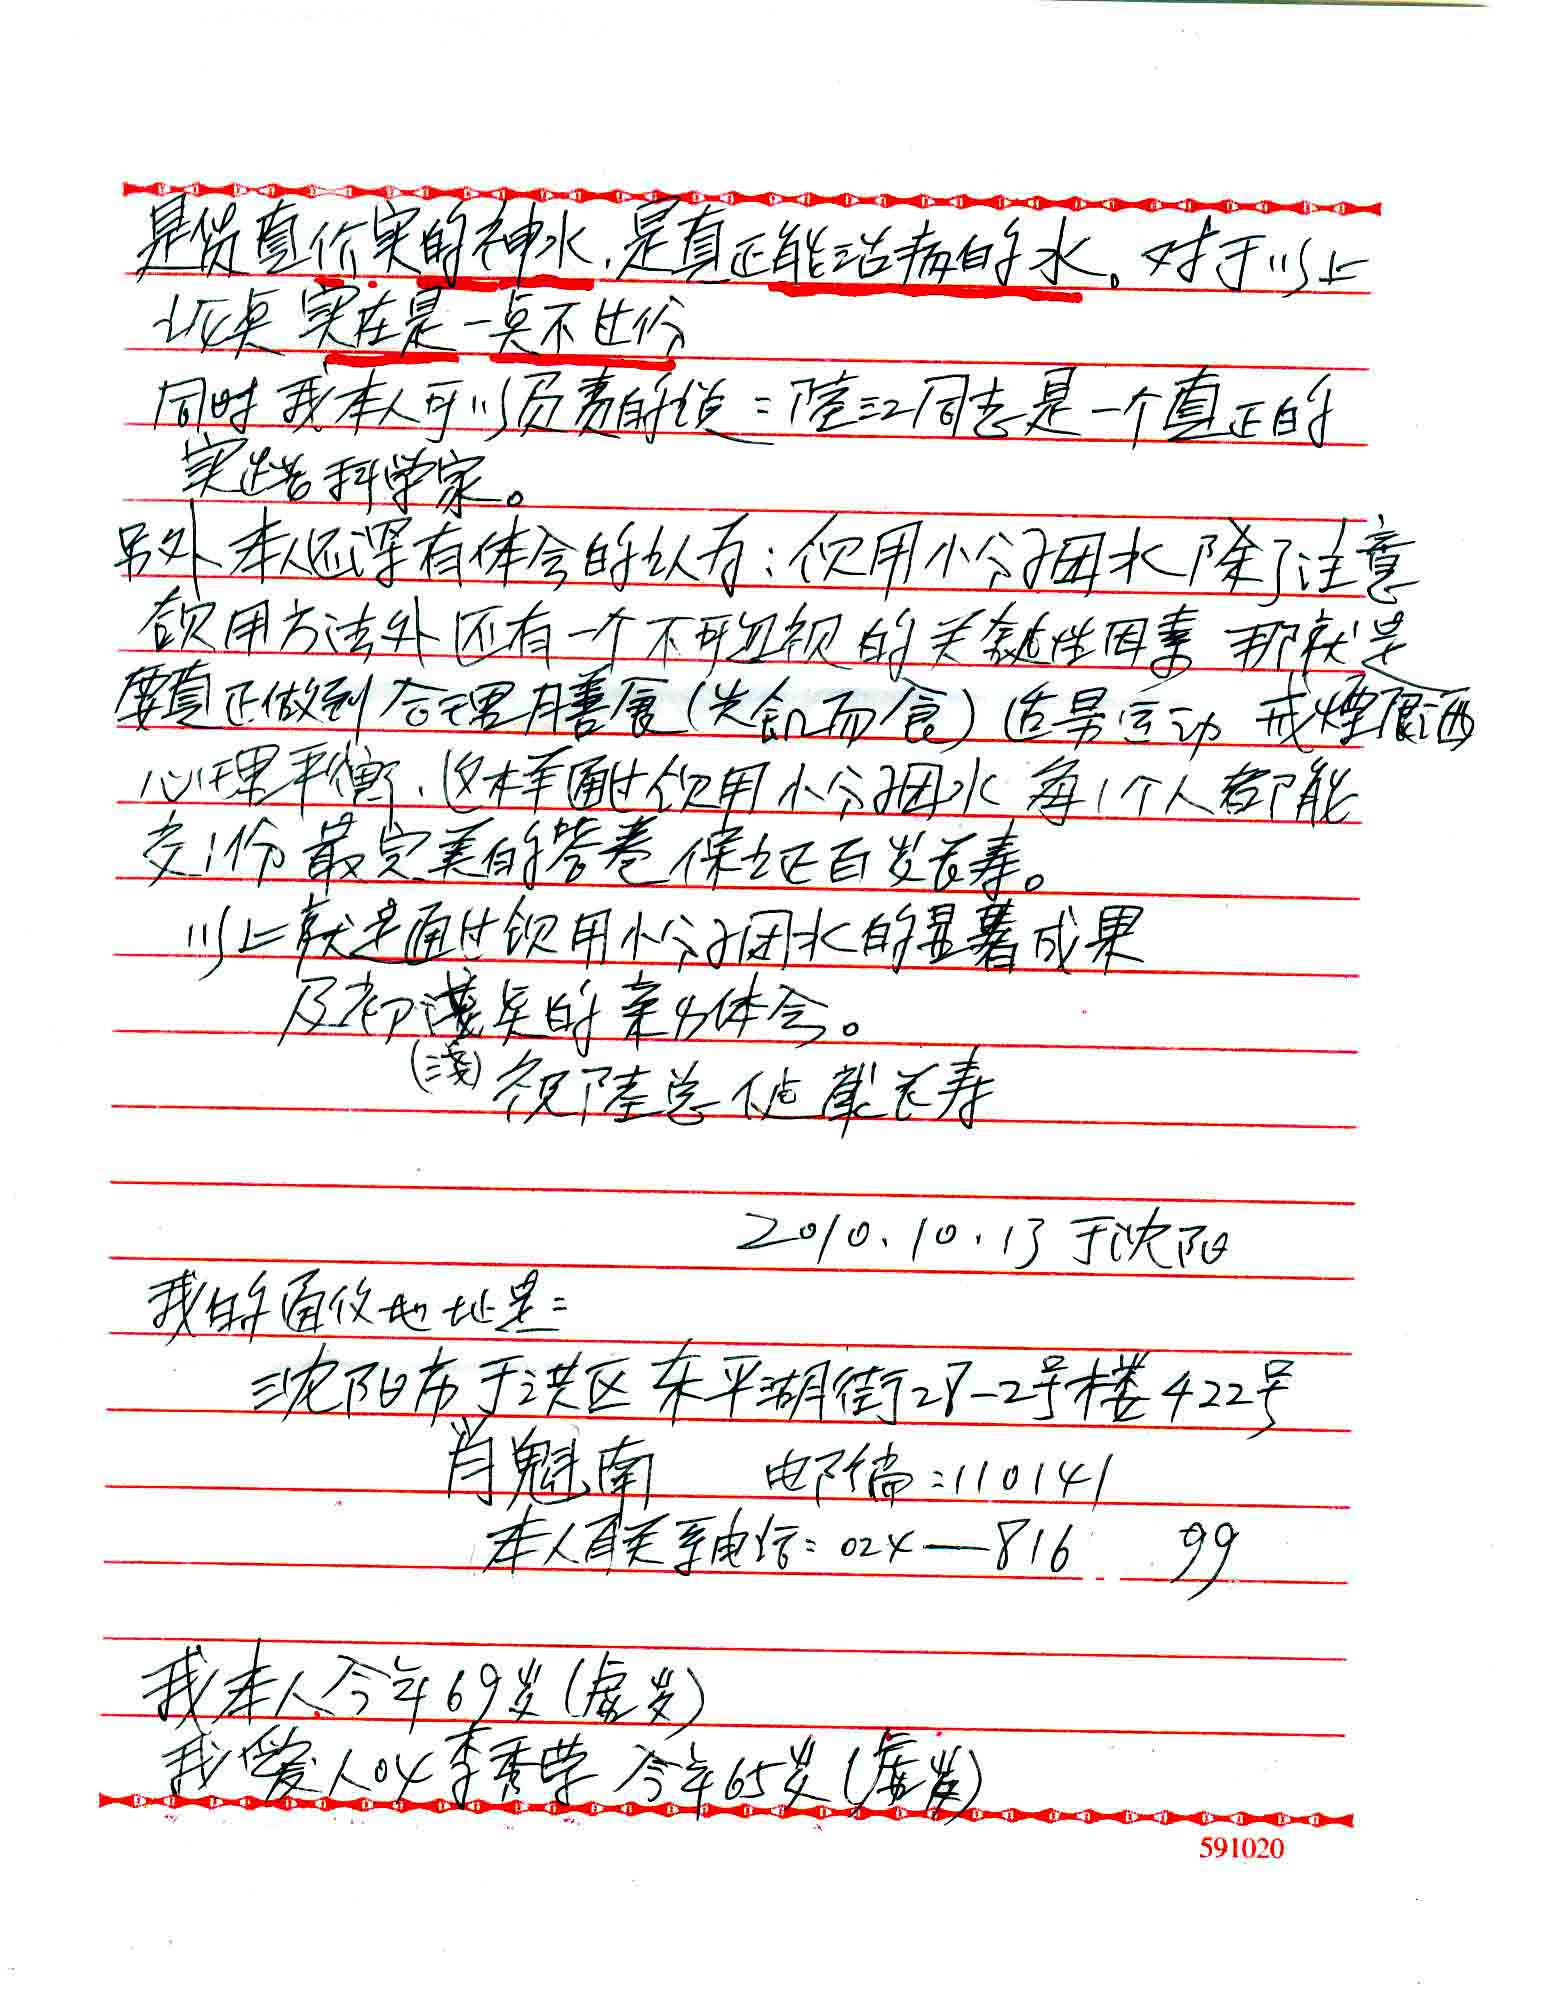 是货真价实的神水,是真正能治病的水。对于以上
评点 实在是一点不过份
同时 我本人可以负责的说:陆江同志是一个真正的
实践科学家。
另外 本人还深有体会的认为:饮用小分子团水 除了注意
饮用方法外 还有一个不可忽视的关键性因素 那就是
要真正做到 合理膳食(先飢而食)适量运动 戒煙限酒
心理平衡,这样通过饮用小分子团水 每1个人都能
交1份最完美的答卷 保证百岁长寿。
以上就是通过饮用小分子团水的显著成果
及初浅点的亲身体会。
(淺) 祝陸总健康长寿
2010.10.13 于沈阳
我的通信地址是:
沈阳市于洪区东平湖街28-2号楼422号
肖魁南 邮编:110141
本人联系电话:024—816 99
我本人今年69岁(虚岁)
我爱人叫李秀荣 今年65岁(虚岁)
591020